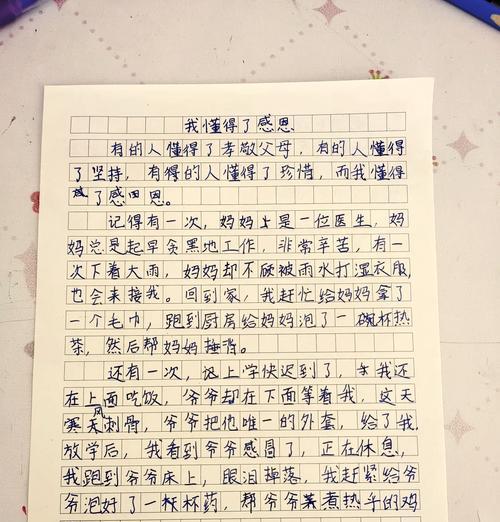 我懂得了感恩
有的人懂得了孝敬父母，有的人懂得
了坚持，有得的人懂得了珍惜，而我懂得
了感恩。
记得有一次，妈妈是一位医生，妈
妈总是起早贪黑地工作，非常辛苦，有一
次下着大雨，妈妈却不顾被雨水打湿衣服，
也会来接我。回到家，我赶忙给妈妈拿了
一个毛巾，跑到厨房给妈妈泡了一碗杯热
茶，然后帮妈妈捶背。
还有一次，上学快迟到了，我还
在上面吃饭，爷爷却在下面等着我，这天
寒风刺骨，爷爷把他唯一的外套，给了我。
放学后，我看到爷爷感冒了，正在休息，
我跑到爷爷床上，眼泪掉落，我赶紧给爷
爷泡好了一杯药，帮爷爷煮热乎的鸡